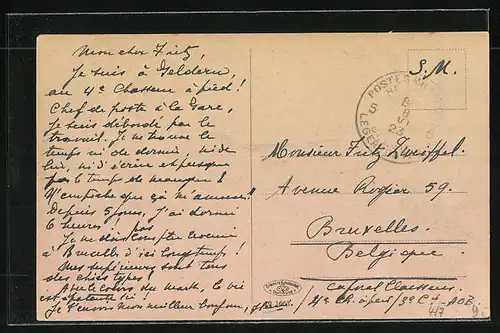 Mon cher Fritz,
Je suis à Geldern,
au 4e Chasseur à pied!
Chef de poste à la Gare,
je suis débordé par le
travail. Je ne trouve le
temps ni de dormir, ni de
lire, ni d'écrire et presque
pas le temps de manger!
N'empêche que ça m'amuse!
Depuis 5 jours, j'ai dormi
6 heures!
pas
Je ne dois compter revenir
à Bruxelles d'ici longtemps!
Mes supérieurs sont tous
des chics types!
Avec le cours du mark, la vie
est épatante ici!
Je t'envoie mon meilleur bonjour,
S.M.
POSTES
5
8
23
LEGER
Monsieur Fritz Zweiffel.
Avenue Rogier 59.
Bruxelles.
Belgique.
Caporal Claessens
4e Ch. à pied/3e Cie - AOB
417